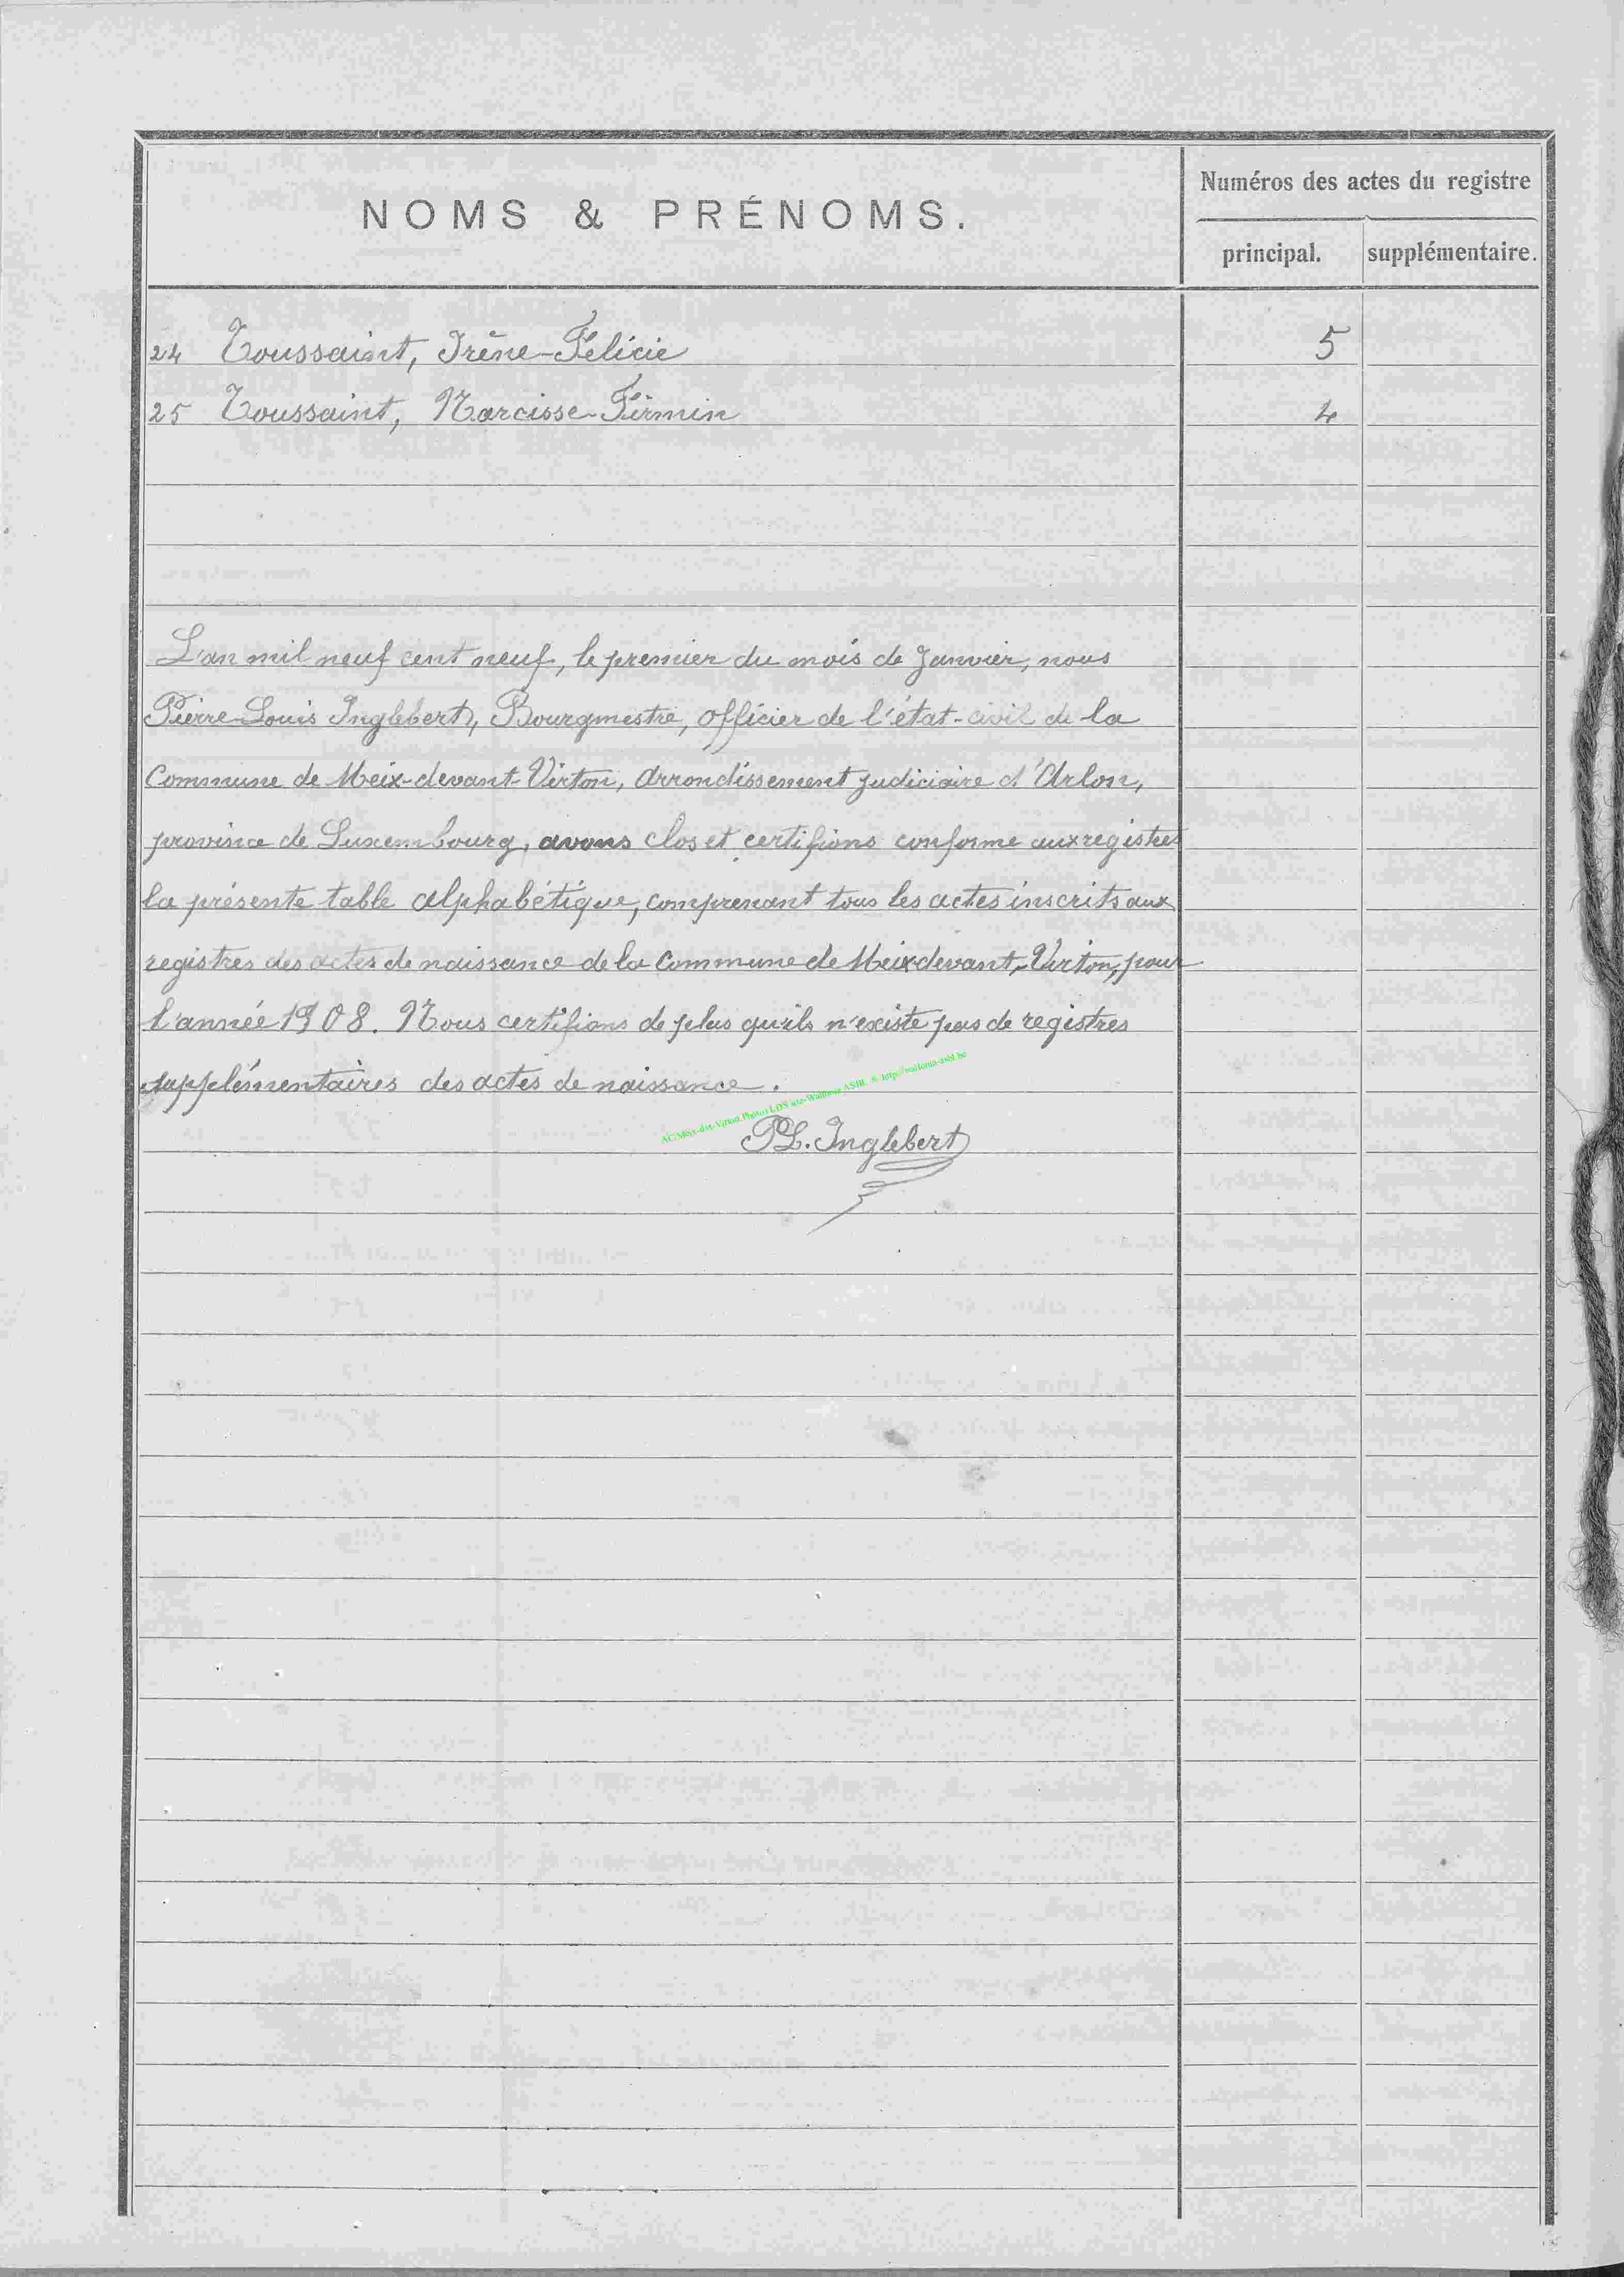 NOMS & PRÉNOMS.
Numéros des actes du registre
principal. supplémentaire.
24 Toussaint, Irène-Félicie 5
25 Toussaint, Narcisse-Firmin 4
L'an mil neuf cent neuf, le premier du mois de Janvier, nous
Pierre-Louis Inglebert, Bourgmestre, officier de l'état-civil de la
Commune de Meix-devant-Virton, arrondissement judiciaire d'Arlon,
province de Luxembourg, avons clos et certifions conforme aux registres
la présente table alphabétique, comprenant tous les actes inscrits aux
registres des actes de naissance de la Commune de Meix devant-Virton, pour
l'année 1908. Nous certifions de plus qu'ils n'existe pas de registres
supplémentaires des actes de naissance.
PL. Inglebert